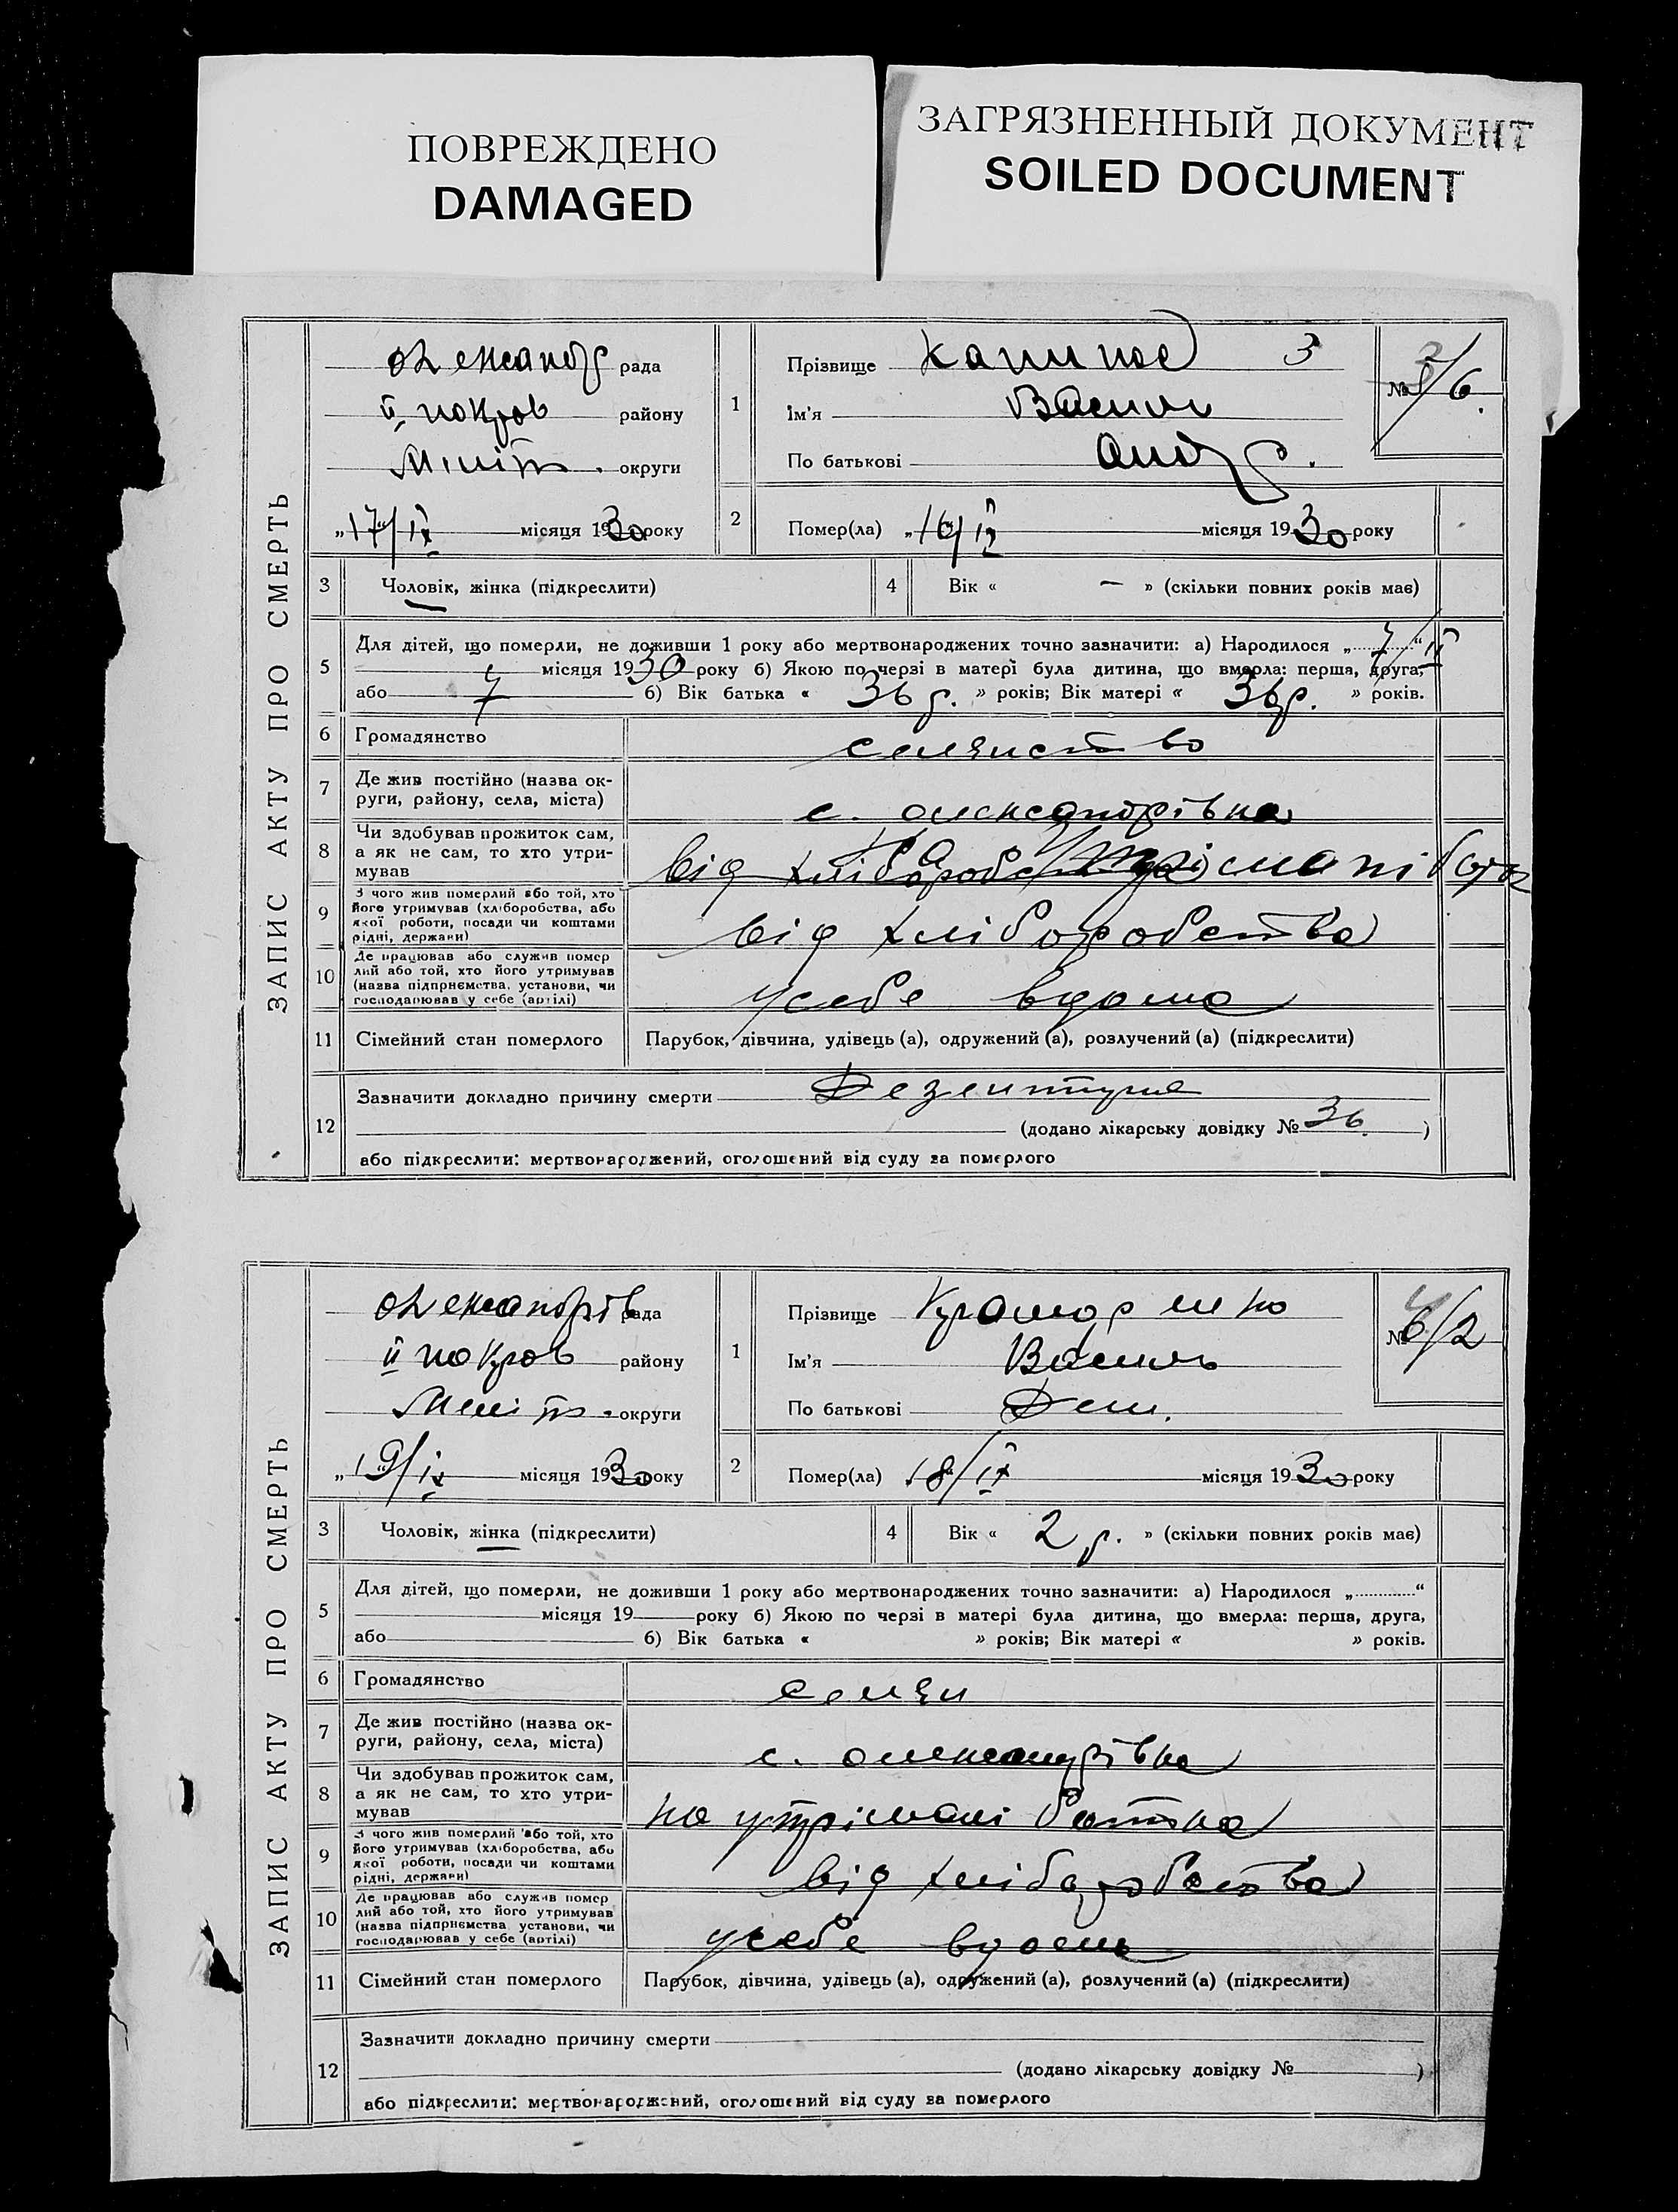 ПОВРЕЖДЕНО
DAMAGED
ЗАГРЯЗНЕННЫЙ ДОКУМЕНТ
SOILED DOCUMENT
ЗАПИС АКТУ ПРО СМЕРТЬ
Олександр рада
ІІ покров району
Меліт. округи
„17/ІХ місяця 1930 року
1
Прізвище 3
Ім'я Василь
По батькові Андр.
№ 3/6.
2
Помер(ла) „16/ІХ місяця 1930 року
3 Чоловік, жінка (підкреслити)
4 Вік « — » (скільки повних років має)
5
Для дітей, що померли, не доживши 1 року або мертвонароджених точно зазначити: а) Народилося „7/ІІ“
місяця 1930 року б) Якою по черзі в матері була дитина, що вмерла: перша, друга,
або 7 б) Вік батька « 36 р. » років; Вік матері « 36 р. » років.
6 Громадянство селянство
7
Де жив постійно (назва ок-
руги, району, села, міста)
с. олександрівка
8
Чи здобував прожиток сам,
а як не сам, то хто утри-
мував
від
9
З чого жив померлий або той, хто
його утримував (хліборобства, або
якої роботи, посади чи коштами
рідні, держави)
від хліборобства
10
Де працював або служив помер
лий або той, хто його утримував
(назва підприємства, установи, чи
господарював у себе (артілі)
усебе вдома
11 Сімейний стан померлого Парубок, дівчина, удівець (а), одружений (а), розлучений (а) (підкреслити)
12
Зазначити докладно причину смерти Дезентирія
(додано лікарську довідку № 36.)
або підкреслити: мертвонароджений, оголошений від суду за померлого
ЗАПИС АКТУ ПРО СМЕРТЬ
Олександрів рада
ІІ покров району
Меліт. округи
„19/ІХ місяця 1930 року
1
Прізвище
Ім'я Василь
По батькові Дем.
№ 6/2
2
Помер(ла) 18/ІХ місяця 1930 року
3 Чоловік, жінка (підкреслити)
4 Вік « 2 р. » (скільки повних років має)
5
Для дітей, що померли, не доживши 1 року або мертвонароджених точно зазначити: а) Народилося „ “
місяця 19 року б) Якою по черзі в матері була дитина, що вмерла: перша, друга,
або б) Вік батька « » років; Вік матері « » років.
6 Громадянство селян
7
Де жив постійно (назва ок-
руги, району, села, міста)
с. олександрівка
8
Чи здобував прожиток сам,
а як не сам, то хто утри-
мував
на утрімані батька
9
З чого жив померлий або той, хто
його утримував (хліборобства, або
якої роботи, посади чи коштами
рідні, держави)
від хліборобства
10
Де працював або служив помер
лий або той, хто його утримував
(назва підприємства установи, чи
господарював у себе (артілі)
усебе вдома
11 Сімейний стан померлого Парубок, дівчина, удівець (а), одружений (а), розлучений (а) (підкреслити)
12
Зазначити докладно причину смерти
(додано лікарську довідку № )
або підкреслити: мертвонароджений, оголошений від суду за померлого